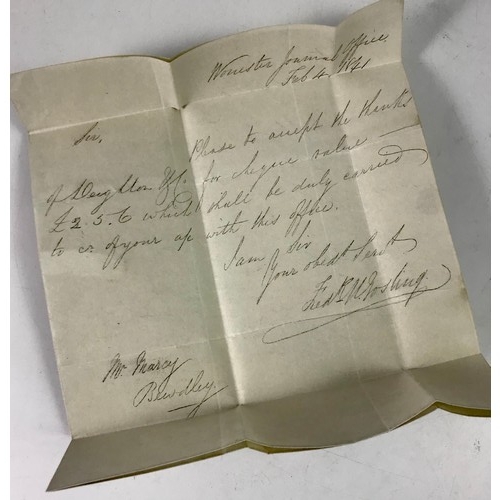 Worcester Journal Office
Feb 4, 1841
Sir,
Please to accept the thanks
of Deighton & Co. for cheque value
£2.5.6 which shall be duly carried
to cr of your ac with this office.
I am Sir
Your obedt Servt
Fredk
Mr Marcy
Bewdley